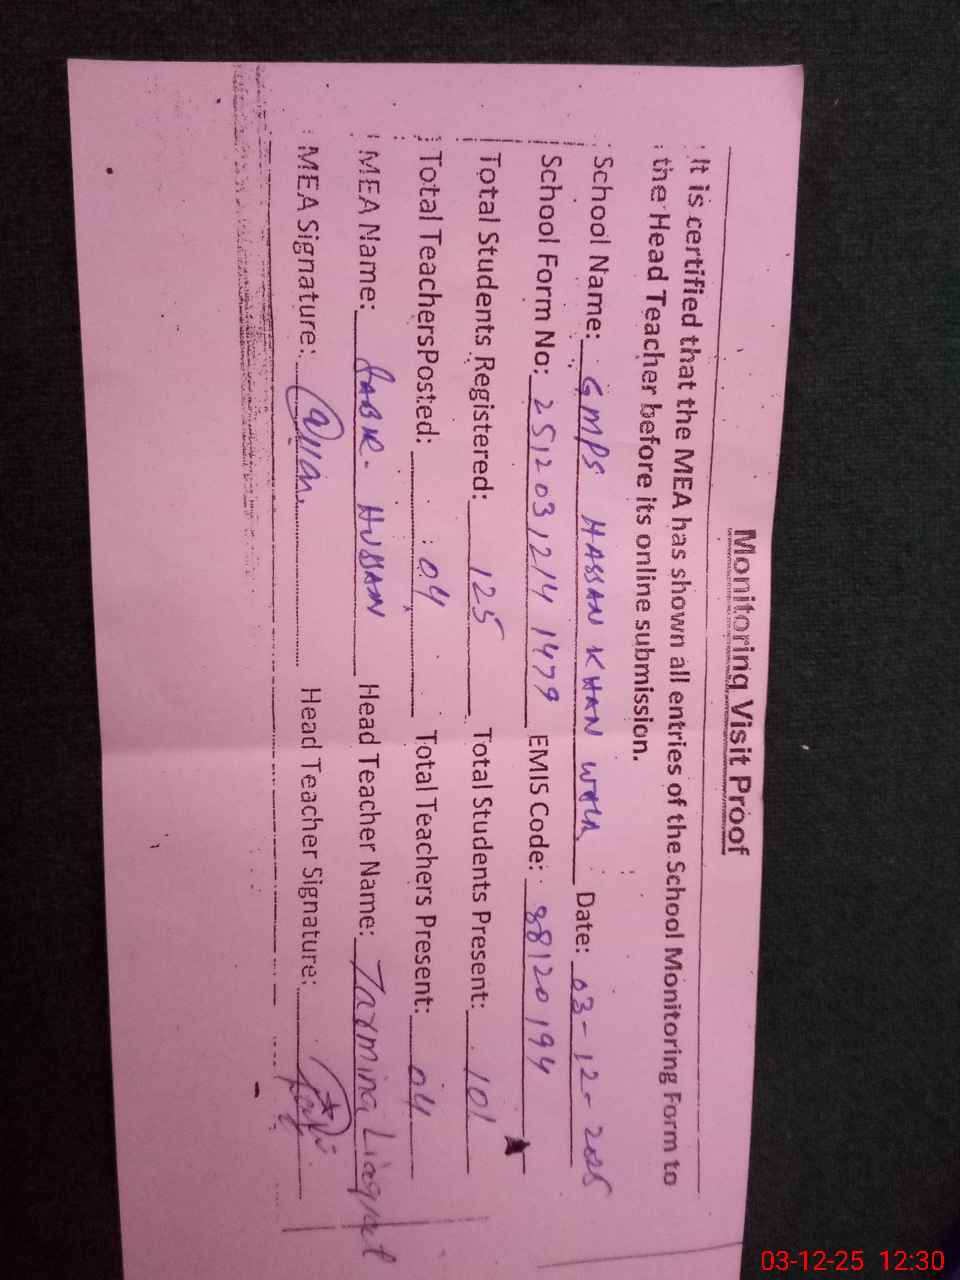 Monitoring Visit Proof
It is certified that the MEA has shown all entries of the School Monitoring Form to
the Head Teacher before its online submission.
School Name: GMPS HASSAN KHAN WALA Date: 03-12-2025
School Form No: 251203 1214 1479 EMIS Code: 38120194
Total Students Registered: 125 Total Students Present: 101
Total TeachersPosted: 04 Total Teachers Present: 04
MEA Name: HUSSAIN Head Teacher Name: Liaqat
MEA Signature: Head Teacher Signature:
03-12-25 12:30